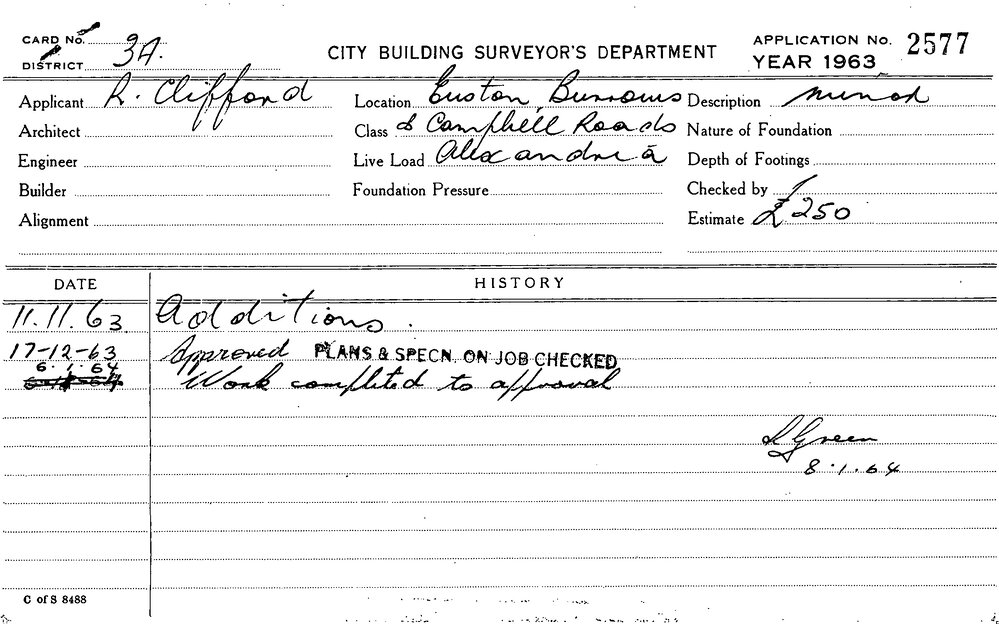 CARD No.
DISTRICT 3A.
CITY BUILDING SURVEYOR'S DEPARTMENT
APPLICATION No. 2577
YEAR 1963
Applicant R. Clifford
Location Euston, Burrows
Description minor
Architect
Class & Campbell Roads
Nature of Foundation
Engineer
Live Load Alexandria
Depth of Footings
Builder
Foundation Pressure
Checked by
Alignment
Estimate £250
DATE HISTORY
11.11.63 Additions.
17-12-63 Approved PLANS & SPECN. ON JOB CHECKED
6.1.64 Work completed to approval
Green
8.1.64
C of S 8488